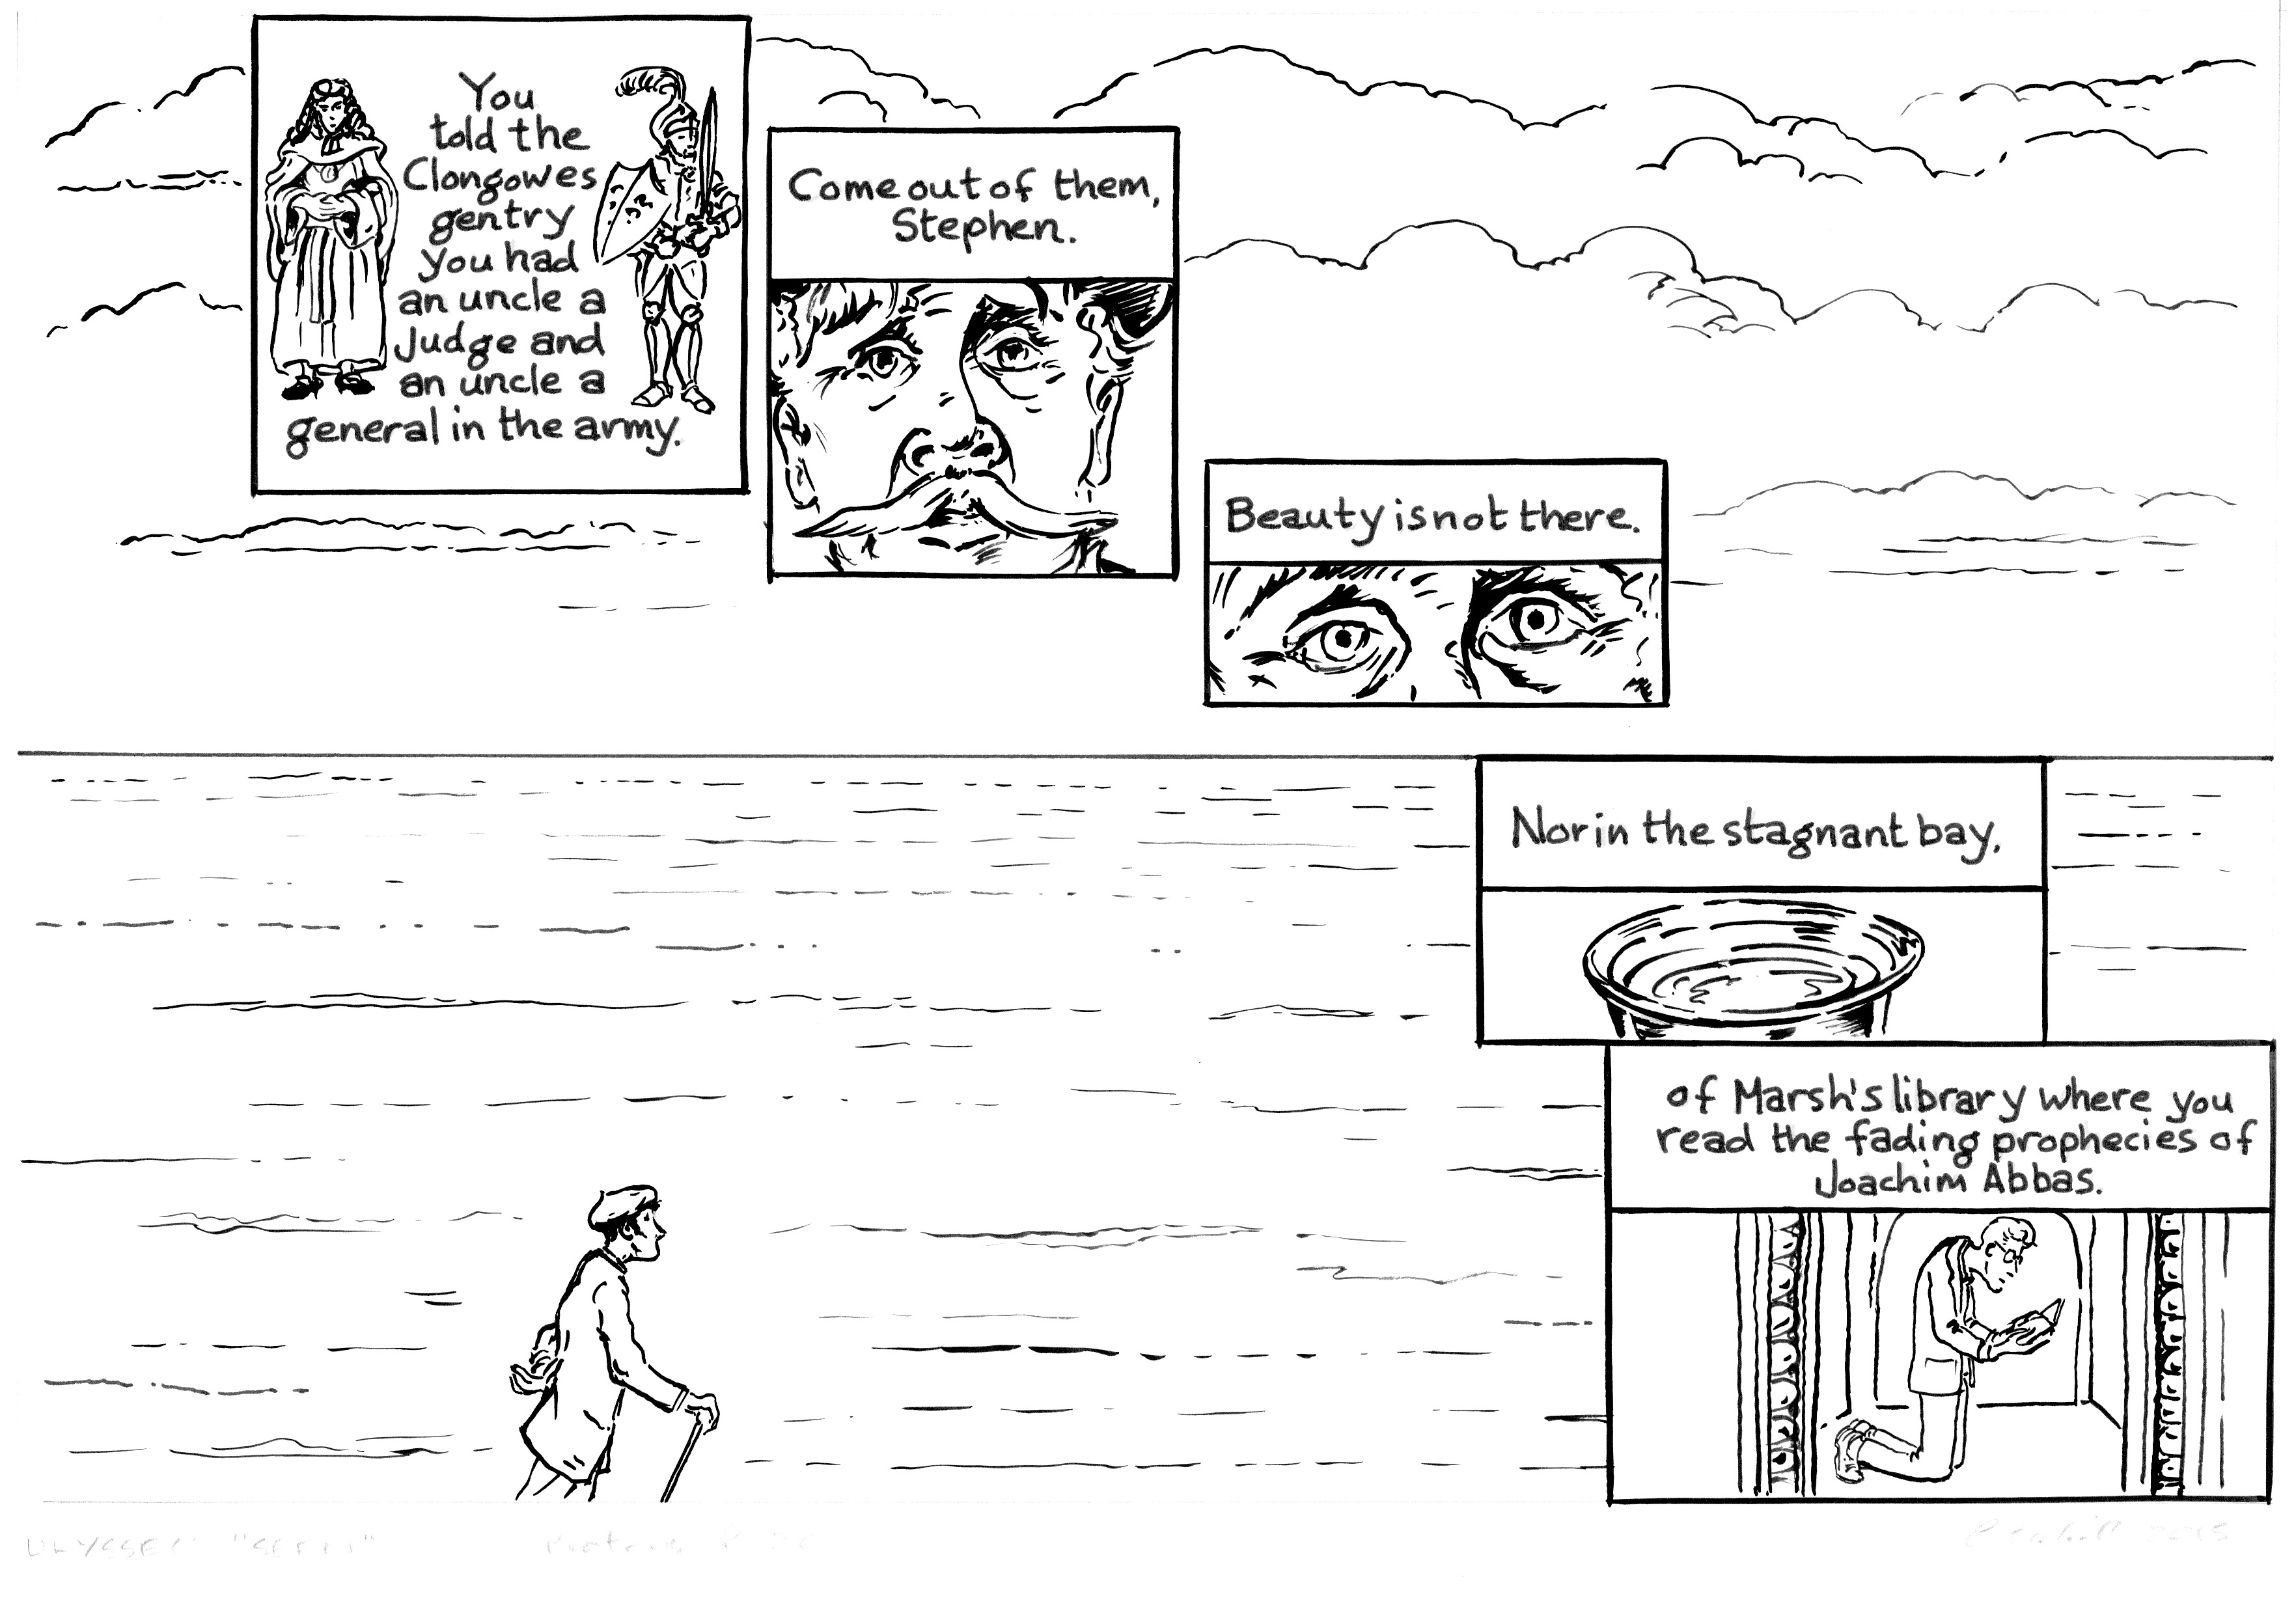 You
told the
Clongowes
gentry
you had
an uncle a
judge and
an uncle a
general in the army.
Come out of them,
Stephen.
Beauty is not there.
Nor in the stagnant bay,
of Marsh's library where you
read the fading prophecies of
Joachim Abbas.
ULYSSES "SEEN"
2015